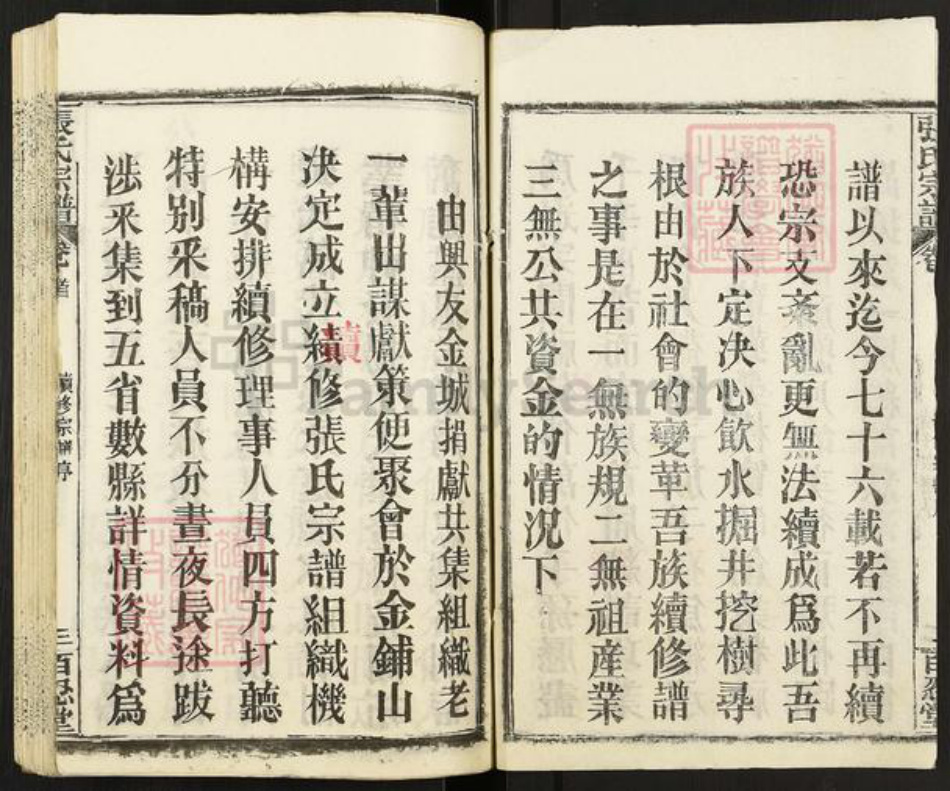 張氏宗譜
譜以來迄今七十六載若不再續
恐宗支紊亂更無法續成爲此吾
族人下定决心飲水掘井挖樹尋
根由於社會的變革吾族續修譜
之事是在一無族規二無祖産業
三無公共資金的情况下
百忍堂
由興友金城捐獻共集組織老
一輩出謀獻策便聚會於金鋪山
决定成立續修張氏宗譜組織機
構安排續修理事人員四方打聽
特别采稿人員不分晝夜長途跋
涉采集到五省數縣詳情資料爲
張氏宗譜
卷首
續修宗譜序
三百忍堂
續
FamilySearch